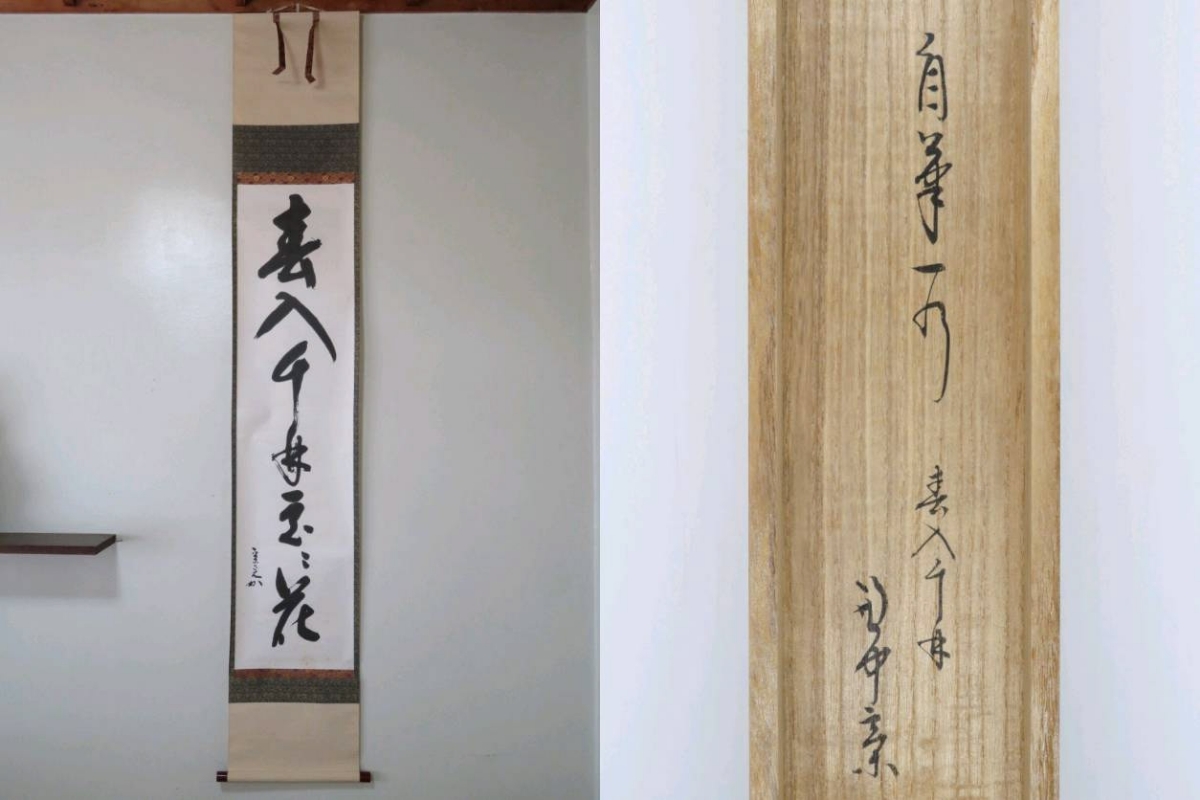 春入千林処〻花
自筆一行
春入千林